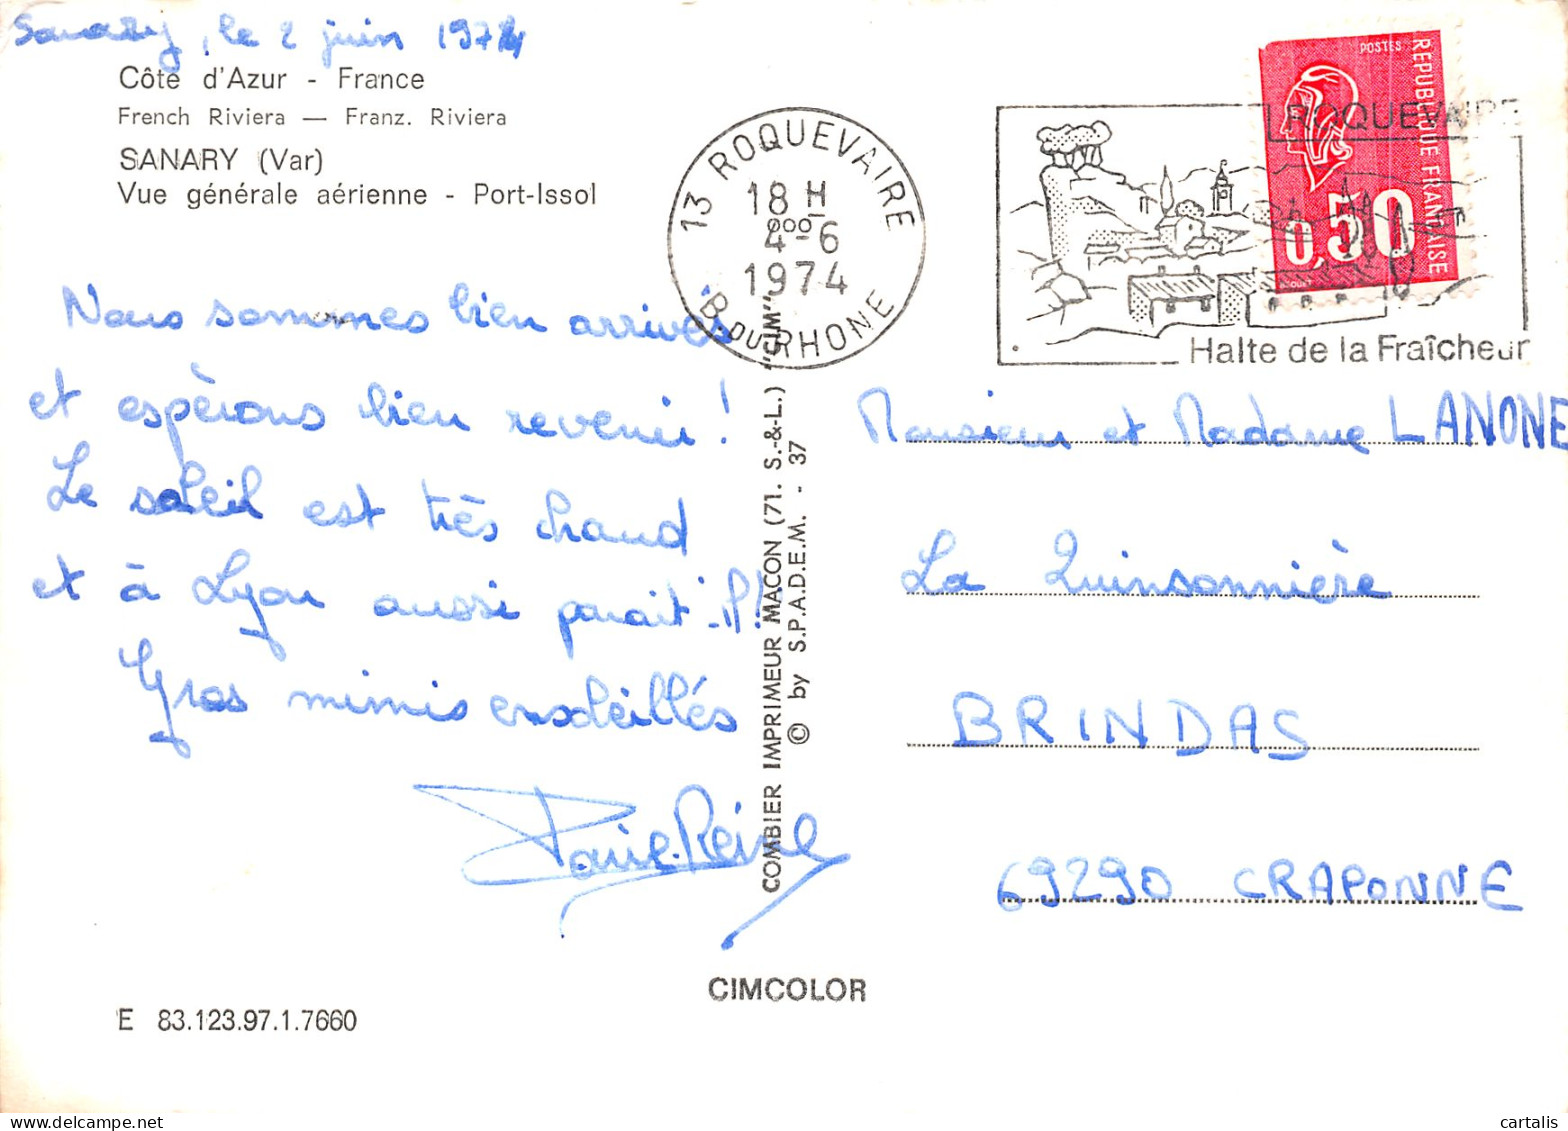 Sanary, le 2 juin 1974
Côte d'Azur - France
French Riviera — Franz. Riviera
SANARY (Var)
Vue générale aérienne - Port-Issol
Nous sommes bien arrivés
et espérons bien revenir !
Le soleil est très chaud
et à Lyon aussi parait-il !
Gros mimis ensoleillés
E 83.123.97.1.7660
CIMCOLOR
COMBIER IMPRIMEUR MACON (71. S.-&-L.) "CIM"
© by S.P.A.D.E.M. - 37
13 ROQUEVAIRE
18 H
4-6
1974
B. DU RHONE
ROQUEVAIRE
Halte de la Fraîcheur
POSTES
REPUBLIQUE FRANÇAISE
0,50
Monsieur et Madame LANONE
La Quinsonnière
BRINDAS
69290 CRAPONNE
cartalis
www.delcampe.net